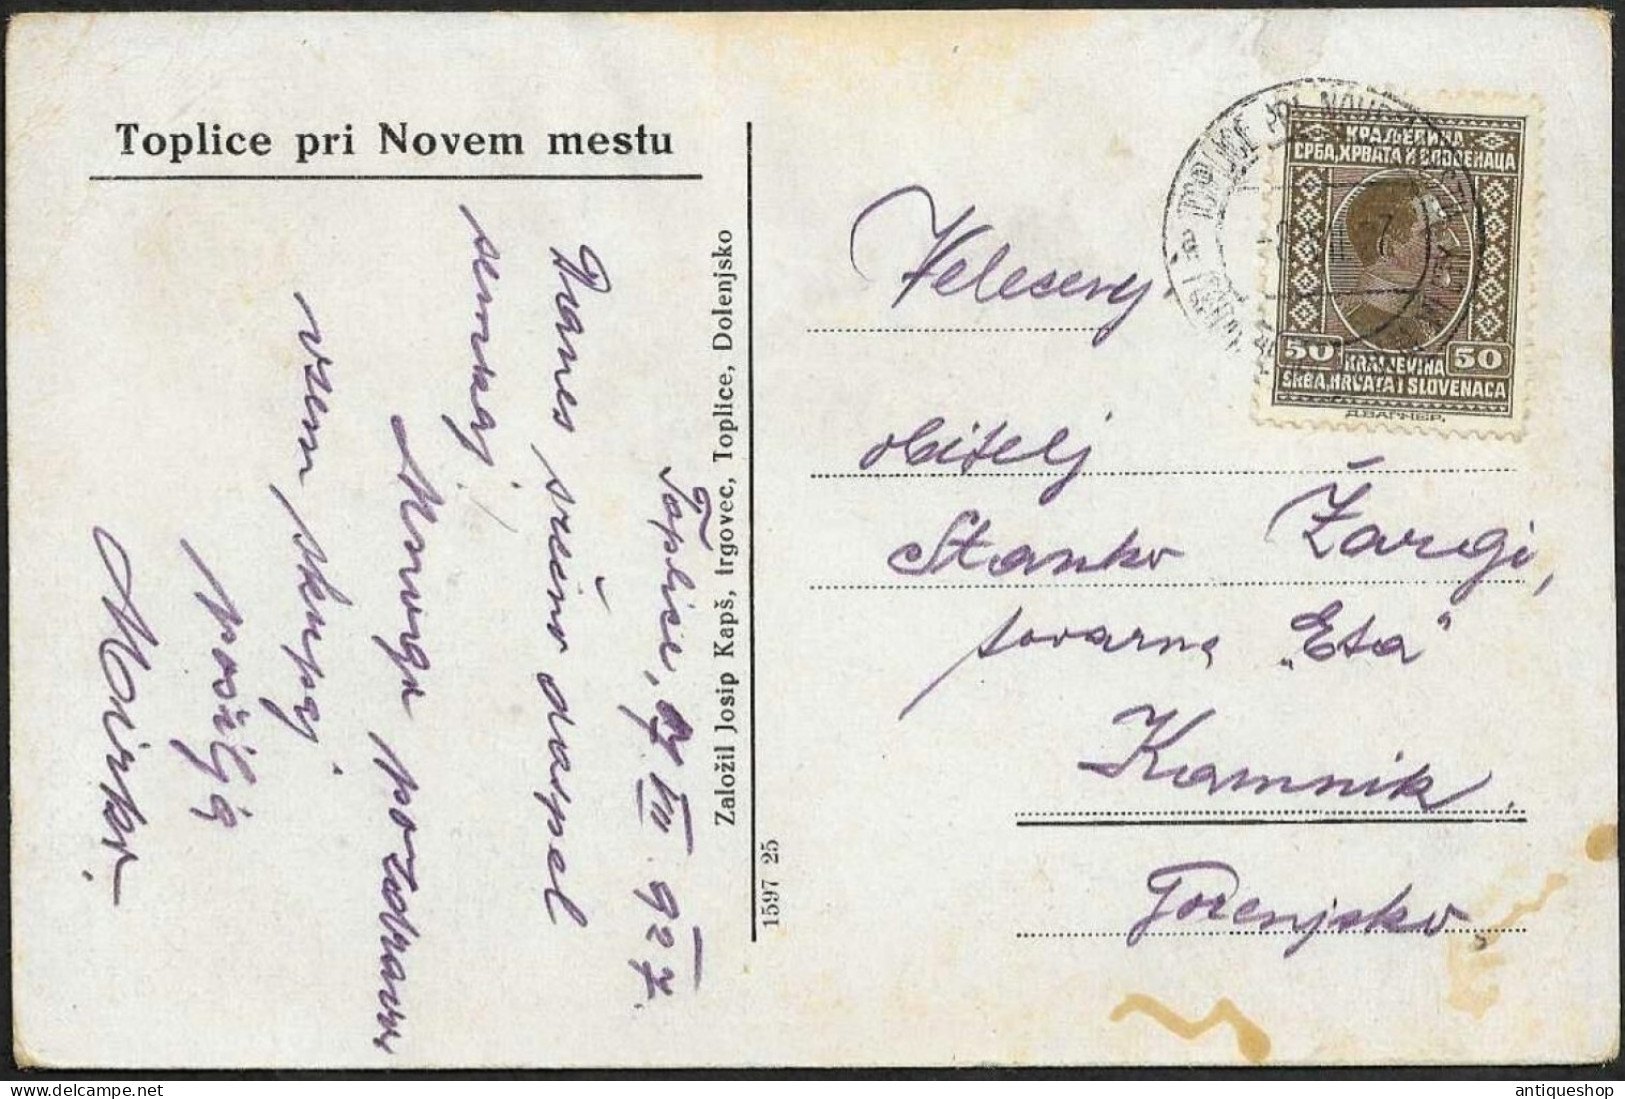 Toplice pri Novem mestu
Toplice, VIII. 927.
Danes srečno dospel
semkaj!
Mnogo pozdravov
vsem skupaj
pošilja
Mirko.
Založil Josip Kapš, trgovec, Toplice, Dolenjsko
1597 25
КРАЉЕВИНА
СРБА, ХРВАТА И СЛОВЕНАЦА
50 KRALJEVINA 50
SRBA, HRVATA I SLOVENACA
Д.ВАГНЕР.
TOPLICE PRI NOVEM
Velecenj.
obitelj
Stanko Žargi,
tovarna „Eta"
Kamnik.
Gorenjsko
antiqueshop